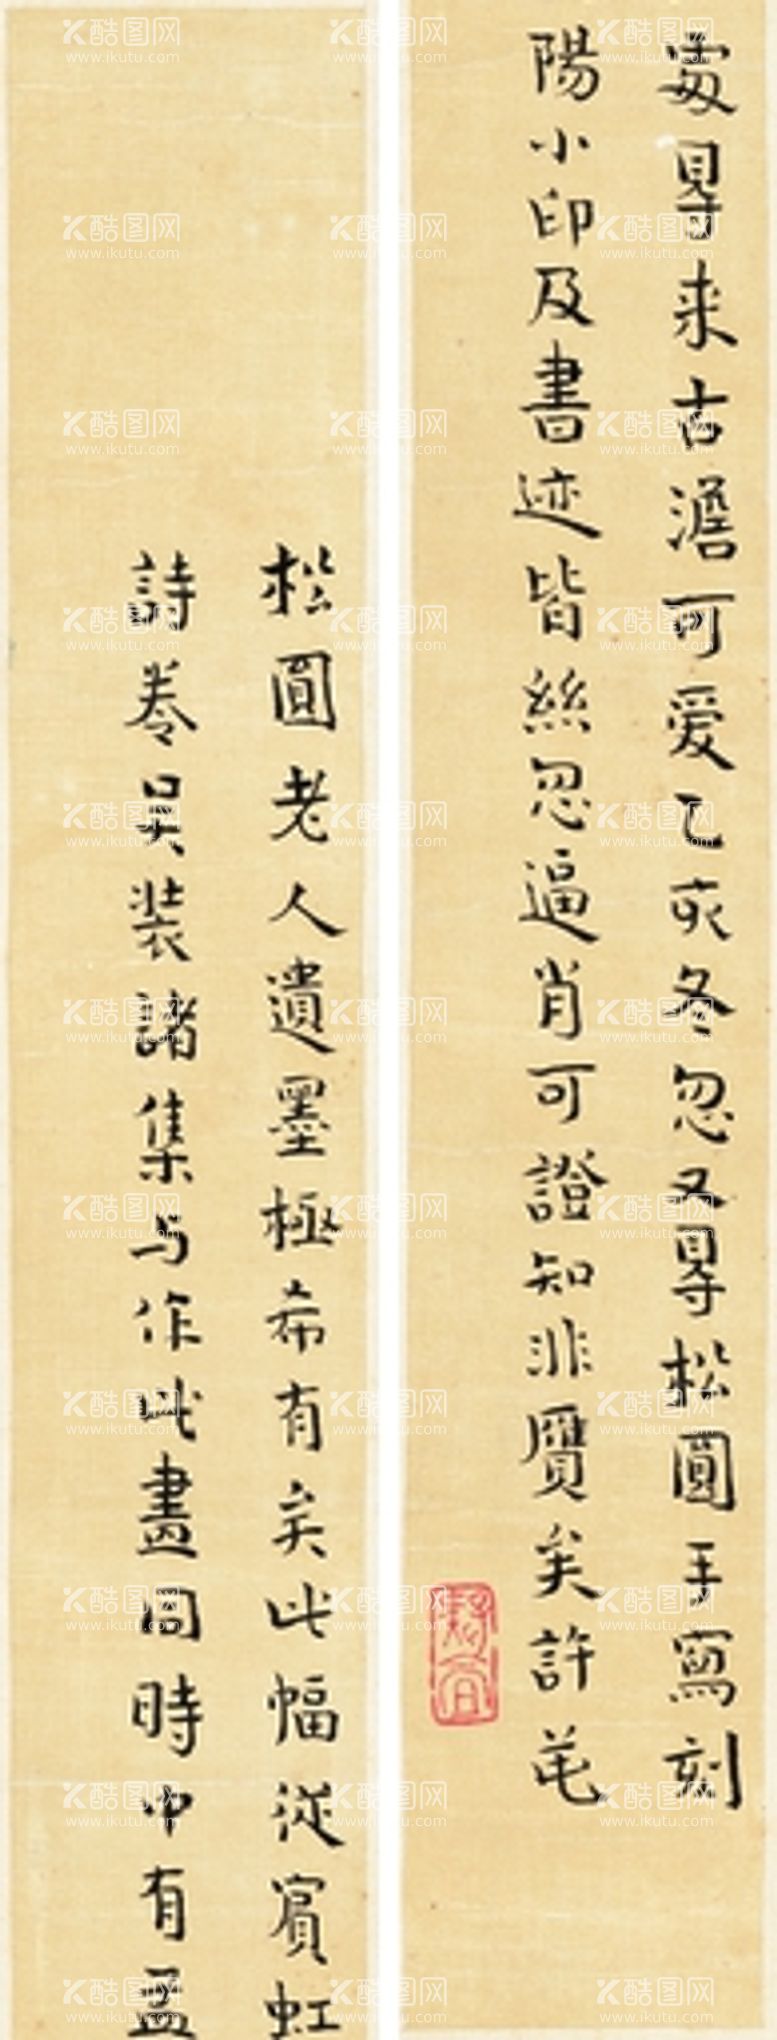 松圓老人遺墨極希有矣此幅從賓虹
處㝵来古澹可爱乙亥冬忽又㝵松圓手寫刻
詩卷吴装諸集与作此畫同時中有孟
陽小印及書迹皆絲忽逼肖可證知非贋矣許芚
酷图网
www.ikutu.com